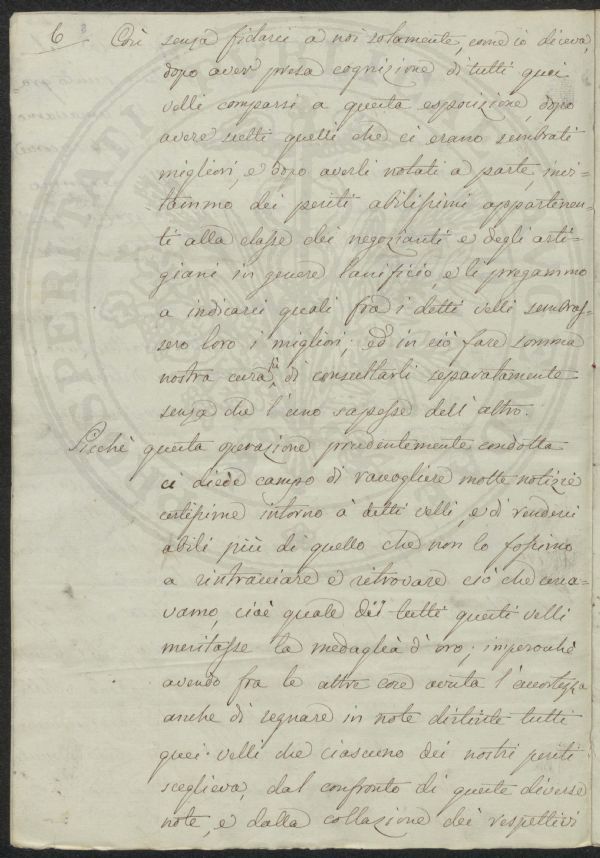 6 Così senza fidarci a noi solamente, come io diceva,
dopo aver presa cognizione di tutti quei
velli comparsi a questa esposizione, dopo
avere scelti quelli che ci erano sembrati
migliori, e dopo averli notati a parte, invi=
tammo dei periti abilissimi appartenen=
ti alla classe dei negozianti e degli arti=
giani in genere lanificio, e li pregammo
a indicarci quali fra i detti velli sembras=
sero loro i migliori; ed in ciò fare somma
nostra cura fù di consultarli separatamente
senza che l'uno sapesse dell'altro.
Sicchè questa operazione prudentemente condotta
ci diede campo di raccogliere molte notizie
certissime intorno à detti velli, e di renderci
abili più di quello che non lo fossimo
a rintracciare e ritrovare ciò che cerca=
vamo, cioè quale di tutti questi velli
meritasse la medaglia d'oro; imperocchè
avendo fra le altre cose avuta l'accortezza
anche di segnare in note distinte tutti
quei velli che ciascuno dei nostri periti
sceglieva, dal confronto di queste diverse
note, e dalla collazione dei respettivi